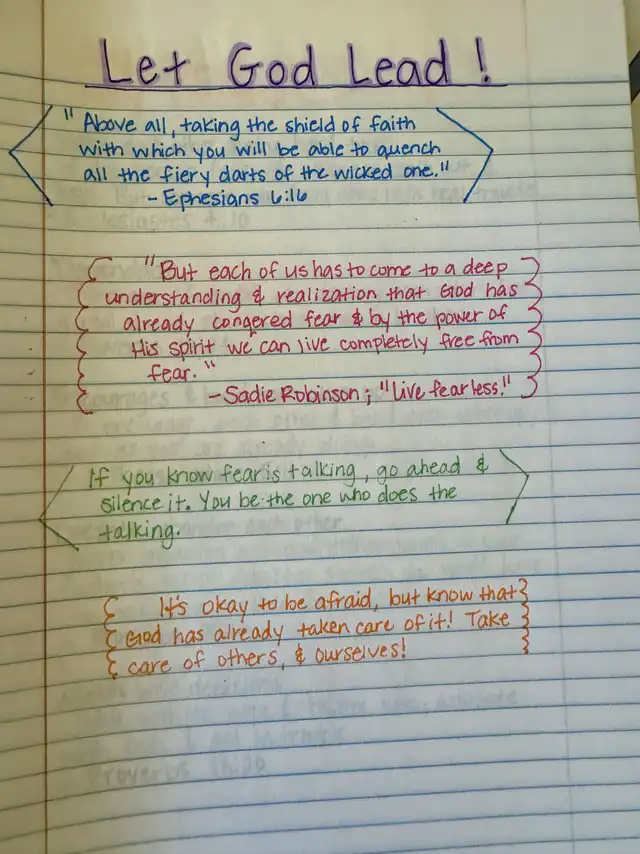 Let God Lead!
"Above all, taking the shield of faith
with which you will be able to quench
all the fiery darts of the wicked one."
- Ephesians 6:16
"But each of us has to come to a deep
understanding & realization that God has
already congered fear & by the power of
His spirit we can live completely free from
fear."
- Sadie Robinson; "Live fearless."
If you know fear is talking, go ahead &
silence it. You be the one who does the
talking.
It's okay to be afraid, but know that
God has already taken care of it! Take
care of others, & ourselves!